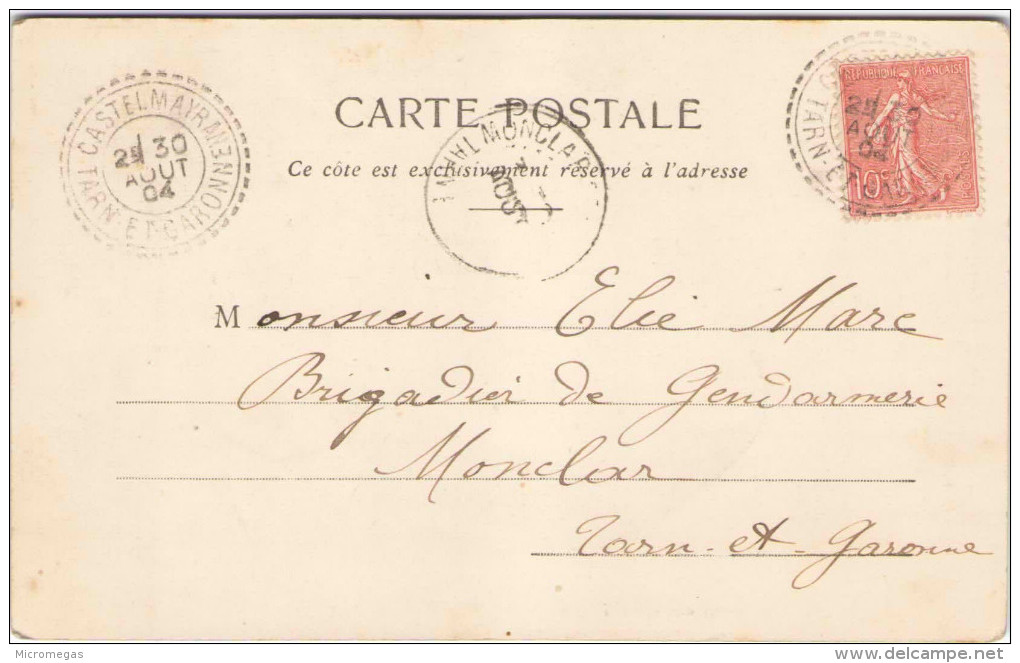 CARTE POSTALE
Ce côte est exclusivement réservé à l'adresse
CASTELMAYRAN
2E 30
AOUT
04
TARN-ET-GARONNE
MONCLAR
RÉPUBLIQUE FRANÇAISE
2E
AOUT
04
TARN-ET-G
10
Monsieur Elie Marc
Brigadier de Gendarmerie
Monclar
Tarn-et-Garonne
Micromegas
delcampe.net